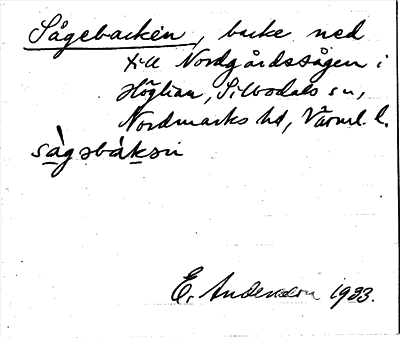 Sågebacken, backe ned
till Nordgårdssågen i
Höglian, Silbodals sn,
Nordmarks hd, Värml. l.
sàgəbàkən
E. Andersson 1933.